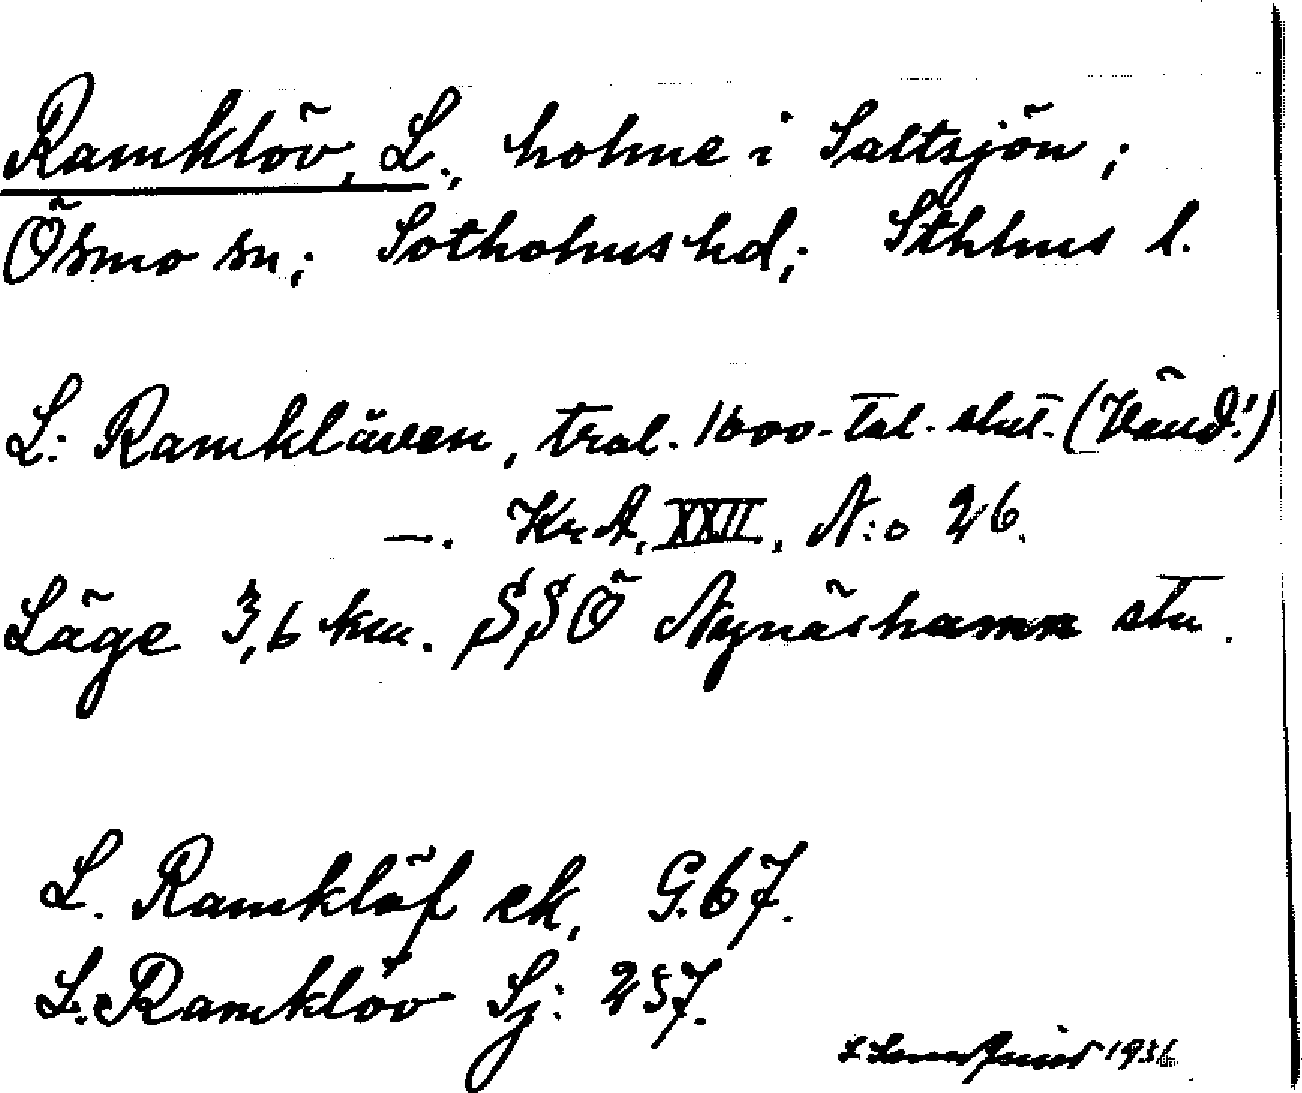 Ramklöv, L., holme i Saltsjön;
Ösmo sn; Sotholms hd; Sthlms l.
L: Ramkläven, trol. 1600-tal. slut. (Vänd!)
—. Kr A, XXII, N:o 26.
Läge 3,6 km. SSÖ Nynäshamn stn.
L. Ramklöf ek, G.67.
L. Ramklöv Sj: 257.
1936